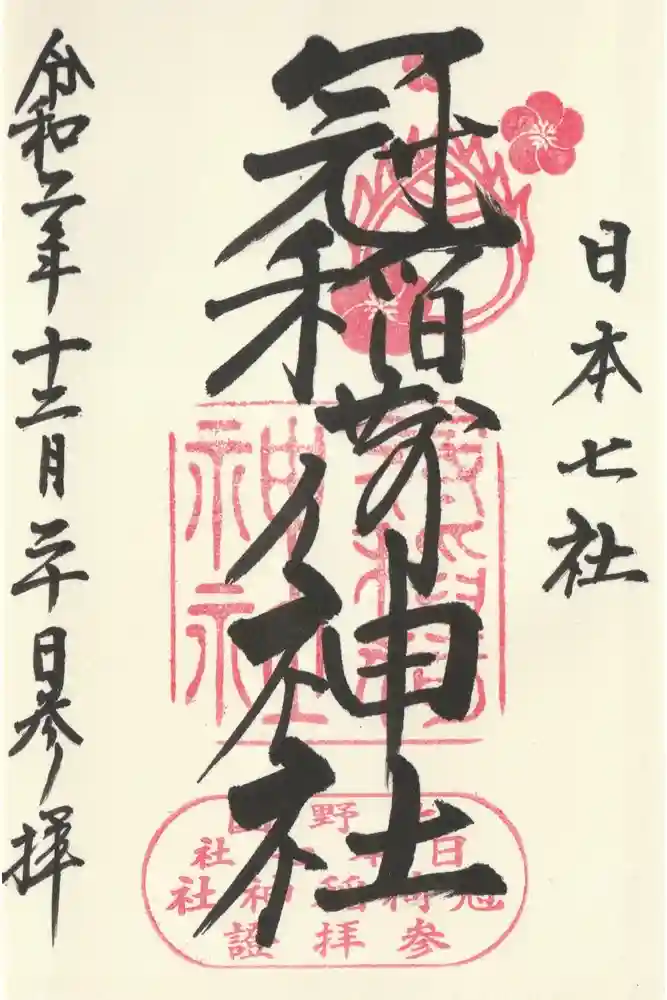 日本七社
冠稲荷神社
令和二年十二月二十日参拝
神社
上野国
日本七社
冠稲荷神社
參拝證